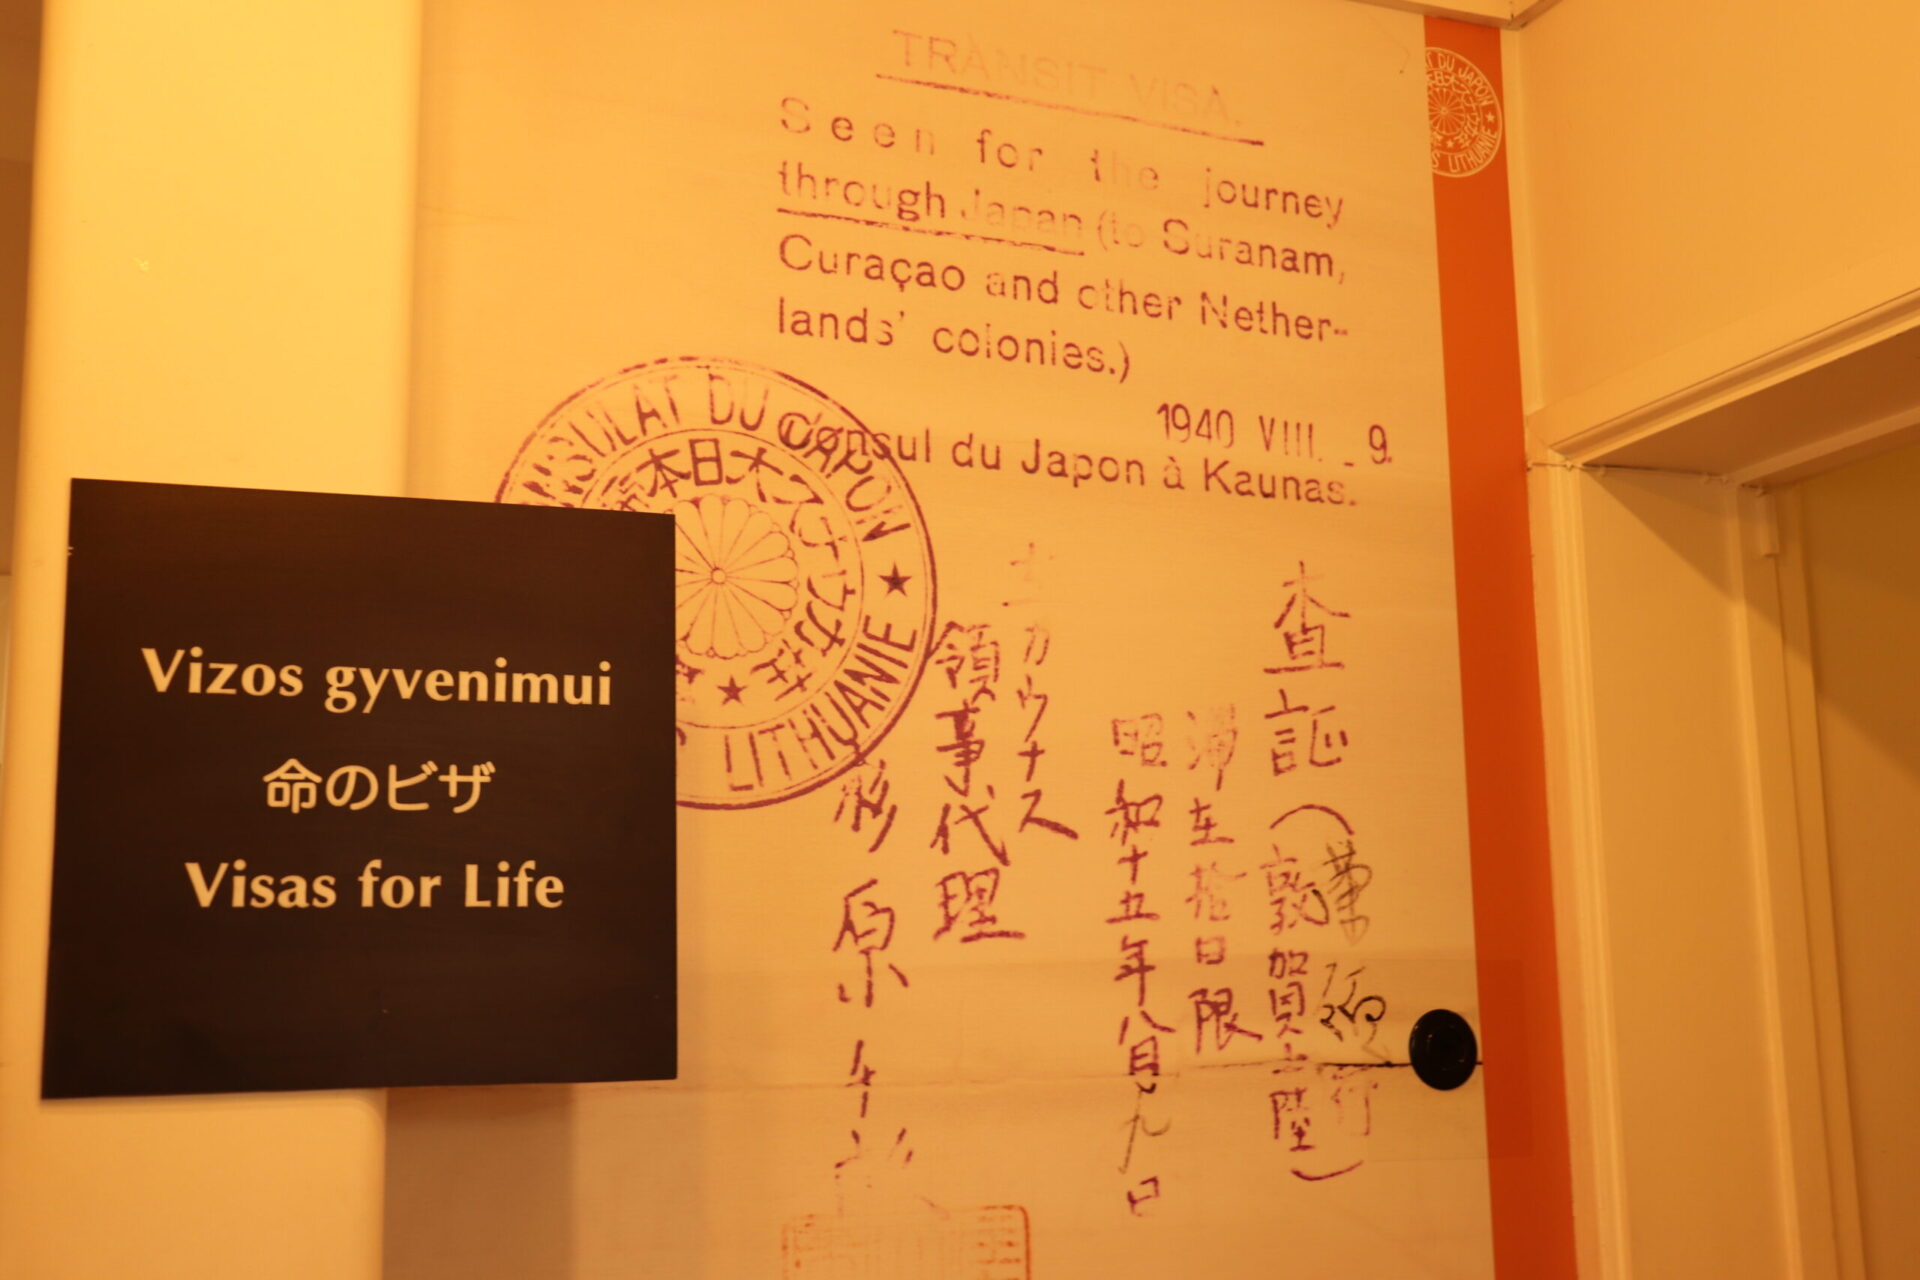 TRANSIT VISA.
Seen for the journey
through Japan (to Suranam,
Curaçao and other Nether-
lands' colonies.)
1940 VIII. 9.
Consul du Japon à Kaunas.
SULAT DU JAPON ★ LITHUANIE
大日本
査証(敦賀上陸)
滞在拾日限
昭和十五年八月九日
在カウナス
領事代理
杉原千畝
Vizos gyvenimui
命のビザ
Visas for Life
T DU JAPON ★ S LITHUANIE